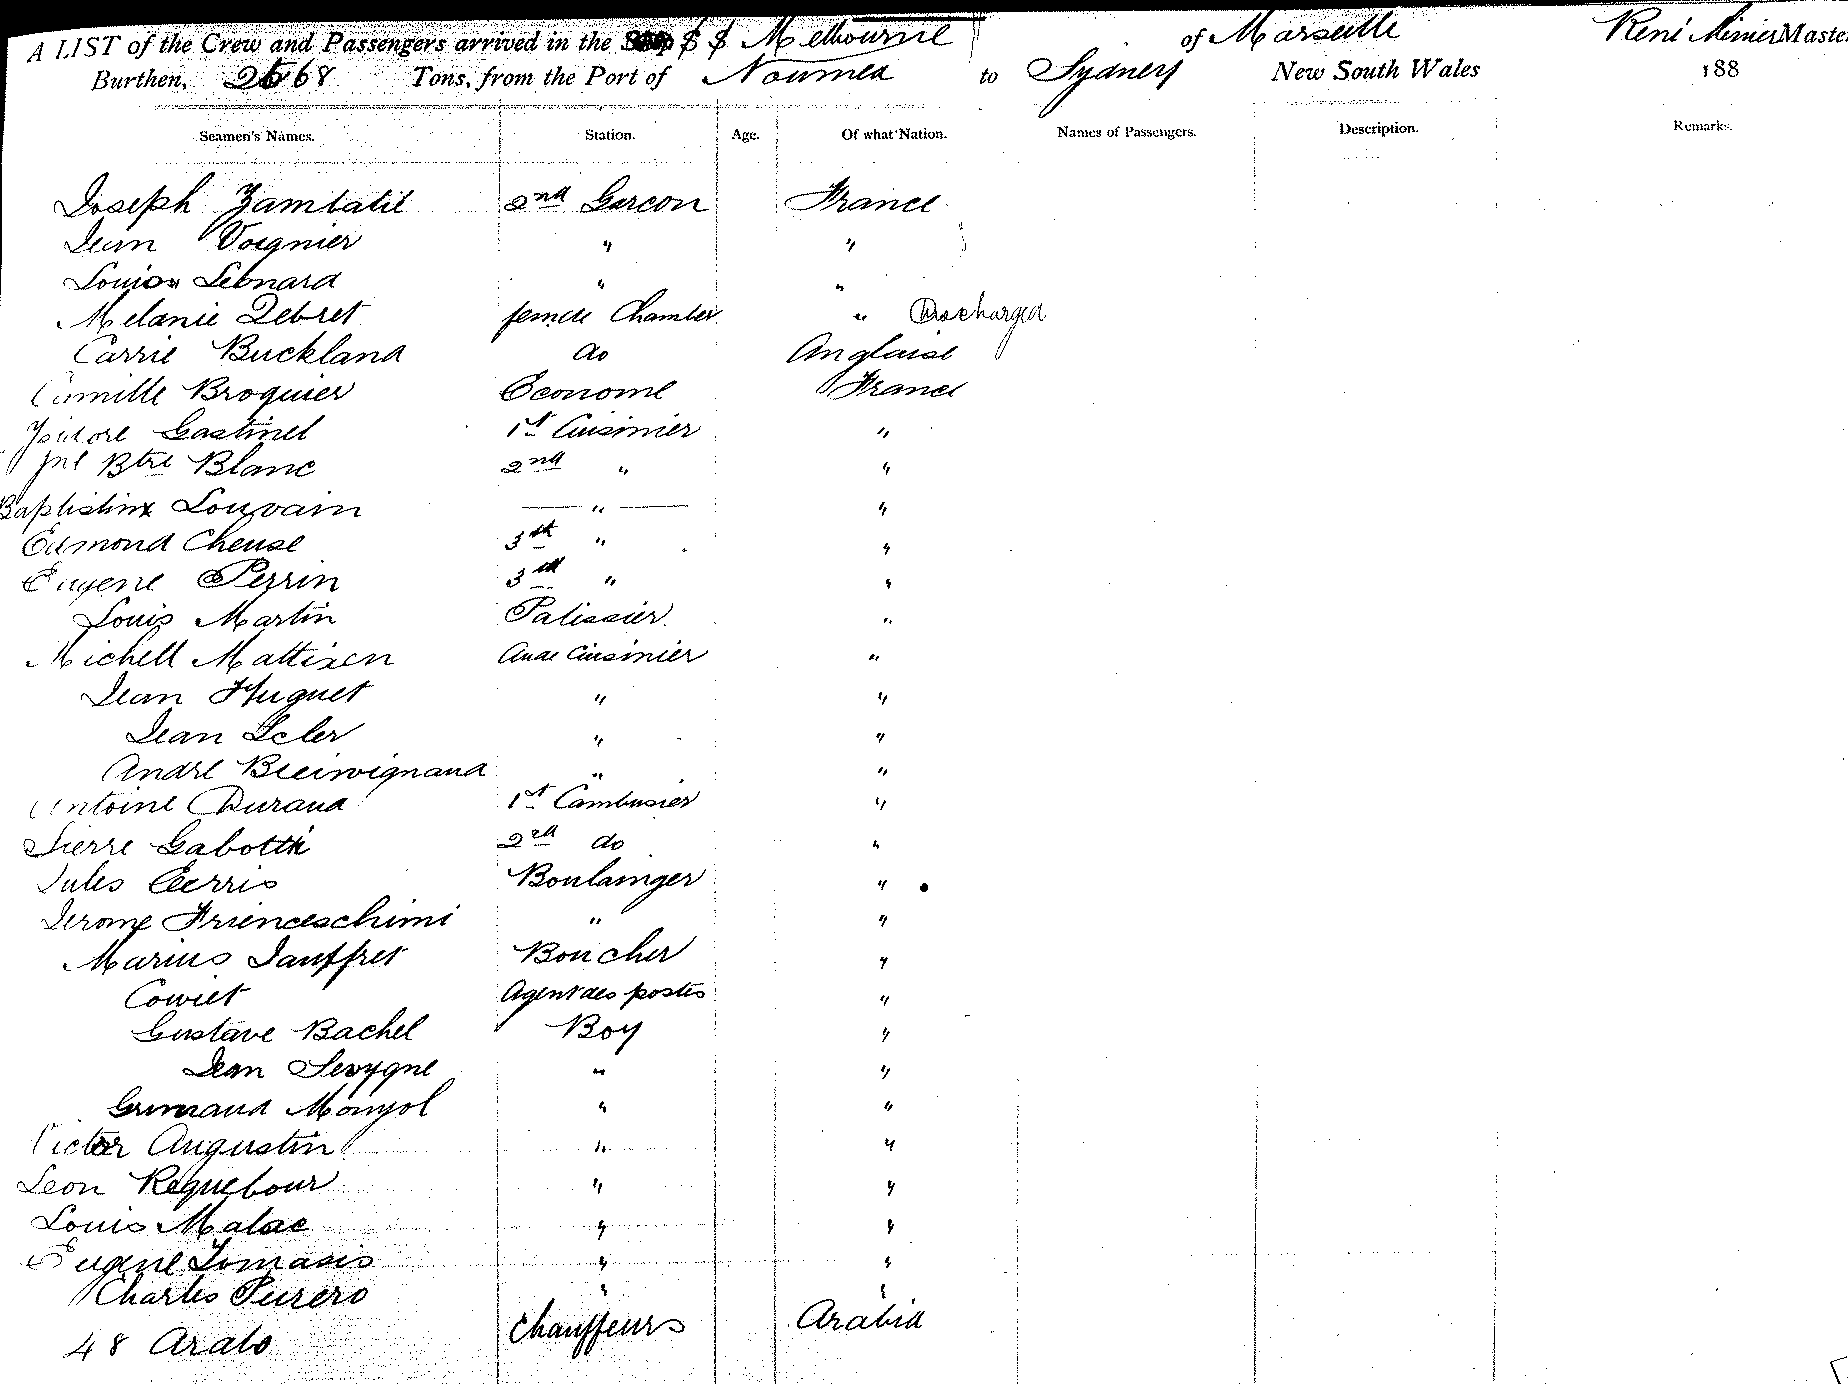 A LIST of the Crew and Passengers arrived in the S S Melbourne of Marseille René Minier Master
Burthen, 2568 Tons, from the Port of Noumea to Sydney New South Wales 188
Seamen's Names. Station. Age. Of what Nation. Names of Passengers. Description. Remarks.
Joseph Zambatil 2nd Garcon France
Jean Vognier " "
Louison Leonard " "
Melanie Debret femme Chamber " Discharged
Carrie Buckland do Anglaise
Camille Broquier Econome France
Isidore Gastinel 1st Cuisinier "
Jnl Btte Blanc 2nd " "
Baptistin Louvain " "
Edmond Cheuse 3th " "
Eugene Perrin 3rd " "
Louis Martin Patissier "
Michell Mattixen Aide Cuisinier "
Jean Huguet " "
Jean Seler " "
Andre " "
Antoine Durand 1st Cambusier "
Pierre Gabotti 2nd do "
Jules Cerris Boulainger "
Jerome Frienceschimi " "
Marius Jauffret Boucher "
Cowiet Agent des postes "
Gustave Bachel Boy "
Jean Levygne " "
Grimaud Monjol " "
Victor Augustin " "
Leon Requebour " "
Louis Malac " "
Eugene Tomasis " "
Charles Purero " "
48 Arabs Chauffeurs Arabia